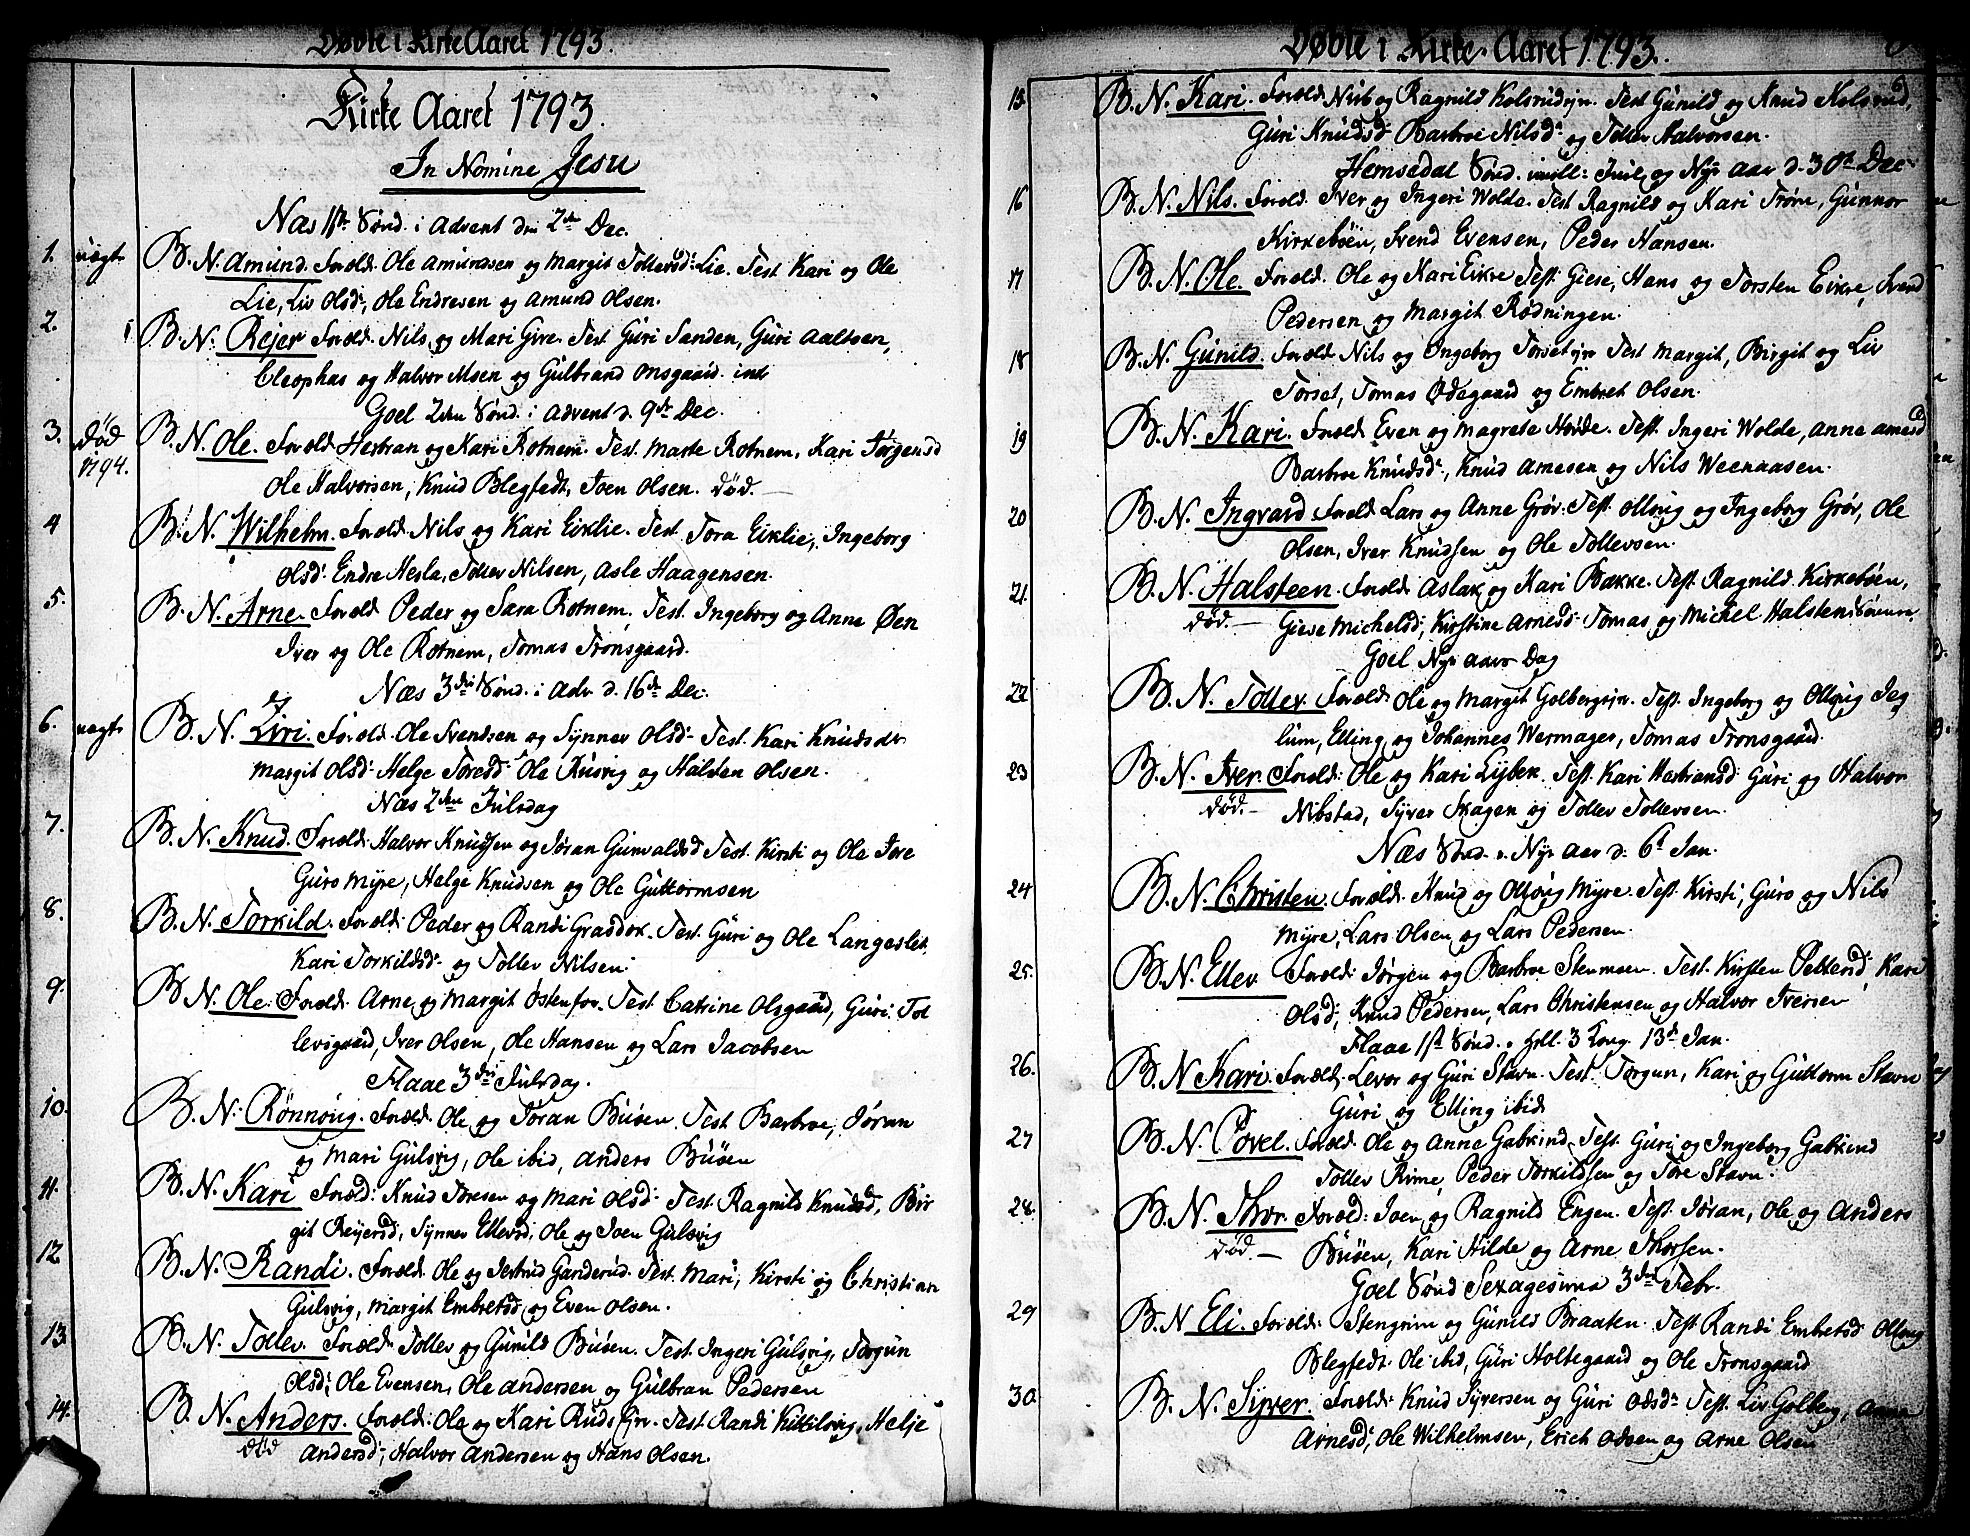 Døbte i Kirke Aaret 1793.
Kirke Aaret 1793.
In Nomine Jesu
Næs 1ste Sønd. i Advent den 2de Dec.
1. uægt B. N. Amund. Foreld. Ole Amundsen og Margit Tollevsd: Lie. Test. Kari og Ole
Lie, Liv Olsd:, Ole Endresen og Amund Olsen.
2. B. N. Rejer Foreld. Nils og Mari Gire. Test Guri Sanden, Guri Aaltsen,
Cleophas og Halvor Moen og Gulbrand Onsgaard. ind
Goel 2den Sønd. i Advent d. 9de Dec.
3. død 1794. B. N. Ole. Foreld Herbran og Kari Rotnem. Test. Marte Rotnem, Kari Jørgensd
Ole Halvorsen, Knud Blegfedt, Joen Olsen. død.
4 B. N. Wilhelm. Foreld. Nils og Kari Eiklie. Test Tora Eiklie, Ingeborg
Olsd: Endre Hesla, Tollev Nilsen, Asle Haagensen.
5. B. N. Arne. Foreld Peder og Sara Rotnem. Test. Ingeborg og Anne Øen
Iver og Ole Rotnem, Tomas Tronsgaard.
Næs 3die Sønd. i Adv. d. 16de Dec.
6. uægt B. N. Siri. Foreld. Ole Svendsen og Synnev Olsd: Test. Kari Knudsdr
Margit Olsd: Helge Toresd: Ole Rusvig og Halsten Olsen.
Næs 2den Julsdag
7. B. N. Knud. Foreld: Halvor Knudsen og Jøran Gunvaldsd Test. Kirsti og Ole Jore
Guro Myre, Helge Knudsen og Ole Guttormsen
8. B. N. Torkild. Foreld: Peder og Randi Graddok. Test. Guri og Ole Langeslet.
Kari Torkildsd: og Tollev Nilsen.
9. B. N. Ole. Foreld. Arne og Margit Østenfor. Test. Catrine Olsgaard, Guri Tol
levsgaard, Iver Olsen, Ole Hansen og Lars Jacobsen
Flaae 3die Julsdag.
10. B. N. Rønnoug. Foreld. Ole og Jøran Buøen. Test. Barbroe, Jøran
og Mari Gulsvig, Ole ibid, Anders Buøen
11. B. N. Kari Foreld: Knud Toresen og Mari Olsd: Test. Ragnild Knudsd, Bir
git Reyersd, Synnev Ellevsd, Ole og Joen Gulsvig
12. B. N. Randi. Foreld. Ole og Jertrud Ganderud. Test. Mari, Kirsti og Christian
Gulsvig, Margit Embretsd og Even Olsen.
13. B. N. Tollev. Foreld: Tollev og Gunild Buøen. Test. Ingeri Gulsvig, Torgun
Olsd: Ole Evensen, Ole Andersen og Gulbran Pedersen
14. B. N. Anders. Foreld: Ole og Kari Ruds Ejer. Test. Randi Kittilsvig, Helje
død Andersd; Halvor Andersen og Hans Olsen.
Døbte i Kirke-Aaret 1793.
15. B. N. Kari. Foreld Nub og Ragnild Kolsrudejer. Test Gunild og Knud Kolsrud,
Guri Knudsd: Barbroe Nilsd: og Tollev Halvorsen.
Hemsedal Sønd. imell: Juul og Nyt Aar d. 30te Dec.
16 B. N. Nils. Foreld. Iver og Ingeri Wolda. Test Ragnild og Kari Trøim, Gunnor
Kirkebøen, Svend Evensen, Peder Hansen.
17 B. N. Ole. Foreld. Ole og Kari Eikre Test. Giese, Hans og Torsten Eikre, Svend
Pedersen og Margit Rødningen.
18 B. N. Gunild. Foreld. Nils og Ingeborg Torsetejer Test Margit, Birgit og Liv
Torset, Tomas Ødegaard og Embret Olsen.
19 B. N. Kari. Foreld Even og Magrete Horde. Test. Ingeri Wolde, Anne Arnesd
Barbroe Knudsd:, Knud Arnesen og Nils Weenaasen.
20 B. N. Ingvard Foreld Lars og Anne Grøv. Test. Olloug og Ingeborg Grøv, Ole
Olsen, Iver Knudsen og Ole Tollevsen.
21. B. N. Halsteen. Foreld: Aslak og Kari Bakke. Test. Ragnild Kirkebøen,
død. Giese Michelsd, Kirstine Arnesd: Tomas og Michel Halstensønner.
Goel Nyt Aars Dag
22 B. N. Tollev. Foreld: Ole og Margit Golbergejer. Test. Ingeborg og Olloug Jeg
lum, Elling og Johannes Wermager, Tomas Tronsgaard.
23 B. N. Iver. Foreld: Ole og Kari Lyben. Test. Kari Herbransd: Guri og Halvor
død. Nibstad, Syver Skagen og Tollev Tollevsen.
Næs Sønd. e. Nyt Aar d. 6t Jan.
24 B. N. Christen. Foreld: Knud og Olloug Myre. Test. Kirsti, Guro og Nils
Myre, Lars Olsen og Lars Pedersen.
25. B. N. Ellev Foreld: Jørgen og Barbroe Stenmoen. Test. Kirsten Pettersd; Kari
Olsd; Knud Pedersen, Lars Christensen og Halvor Iversen
Flaae 1ste Sønd. e. Hell. 3 Kong. 13de Jan.
26. B. N. Kari. Foreld: Levor og Guri Stavn. Test. Torgun, Kari og Guttorm Stavn
Guri og Elling ibid
27 B. N. Povel. Foreld. Ole og Anne Gabkind. Test. Guri og Ingeborg Gabkind
Tollev Rime, Peder Torkildsen og Tore Stavn.
28. B. N. Thor. Foreld: Joen og Ragnild Engen. Test. Jøran, Ole og Anders
død. Buøen, Kari Hilde og Arne Thorsen.
Goel Sønd Sexagesima 3die Febr.
29 B. N. Eli. Foreld: Stengrim og Gunild Braaten. Test Randi Embretsd Olloug
Blegfedt. Ole ibid, Guri Holtegaard og Ole Tronsgaard
30. B. N. Syver. Foreld: Knud Syversen og Guri Odsd: Test. Liv Golberg, Anne
Arnesd; Ole Wilhelmsen, Erich Odsen og Arne Olsen